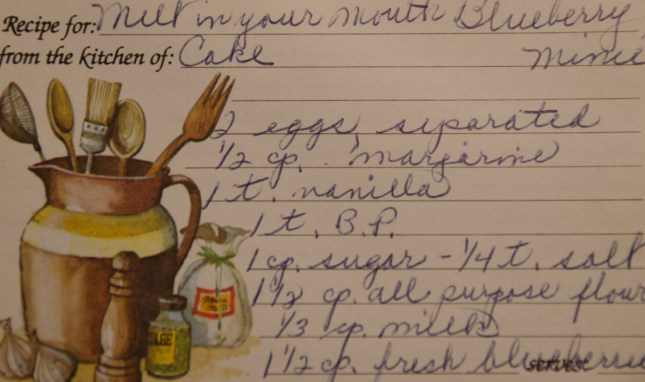 Recipe for: Melt in your mouth Blueberry
from the kitchen of: Cake Minie
2 eggs, separated
1/2 cp. margarine
1 t. vanilla
1 t. B.P.
1 cp. sugar - 1/4 t. salt
1 1/2 cp. all purpose flour
1/3 cp. milk
1 1/2 cp. fresh blueberrie
serves: